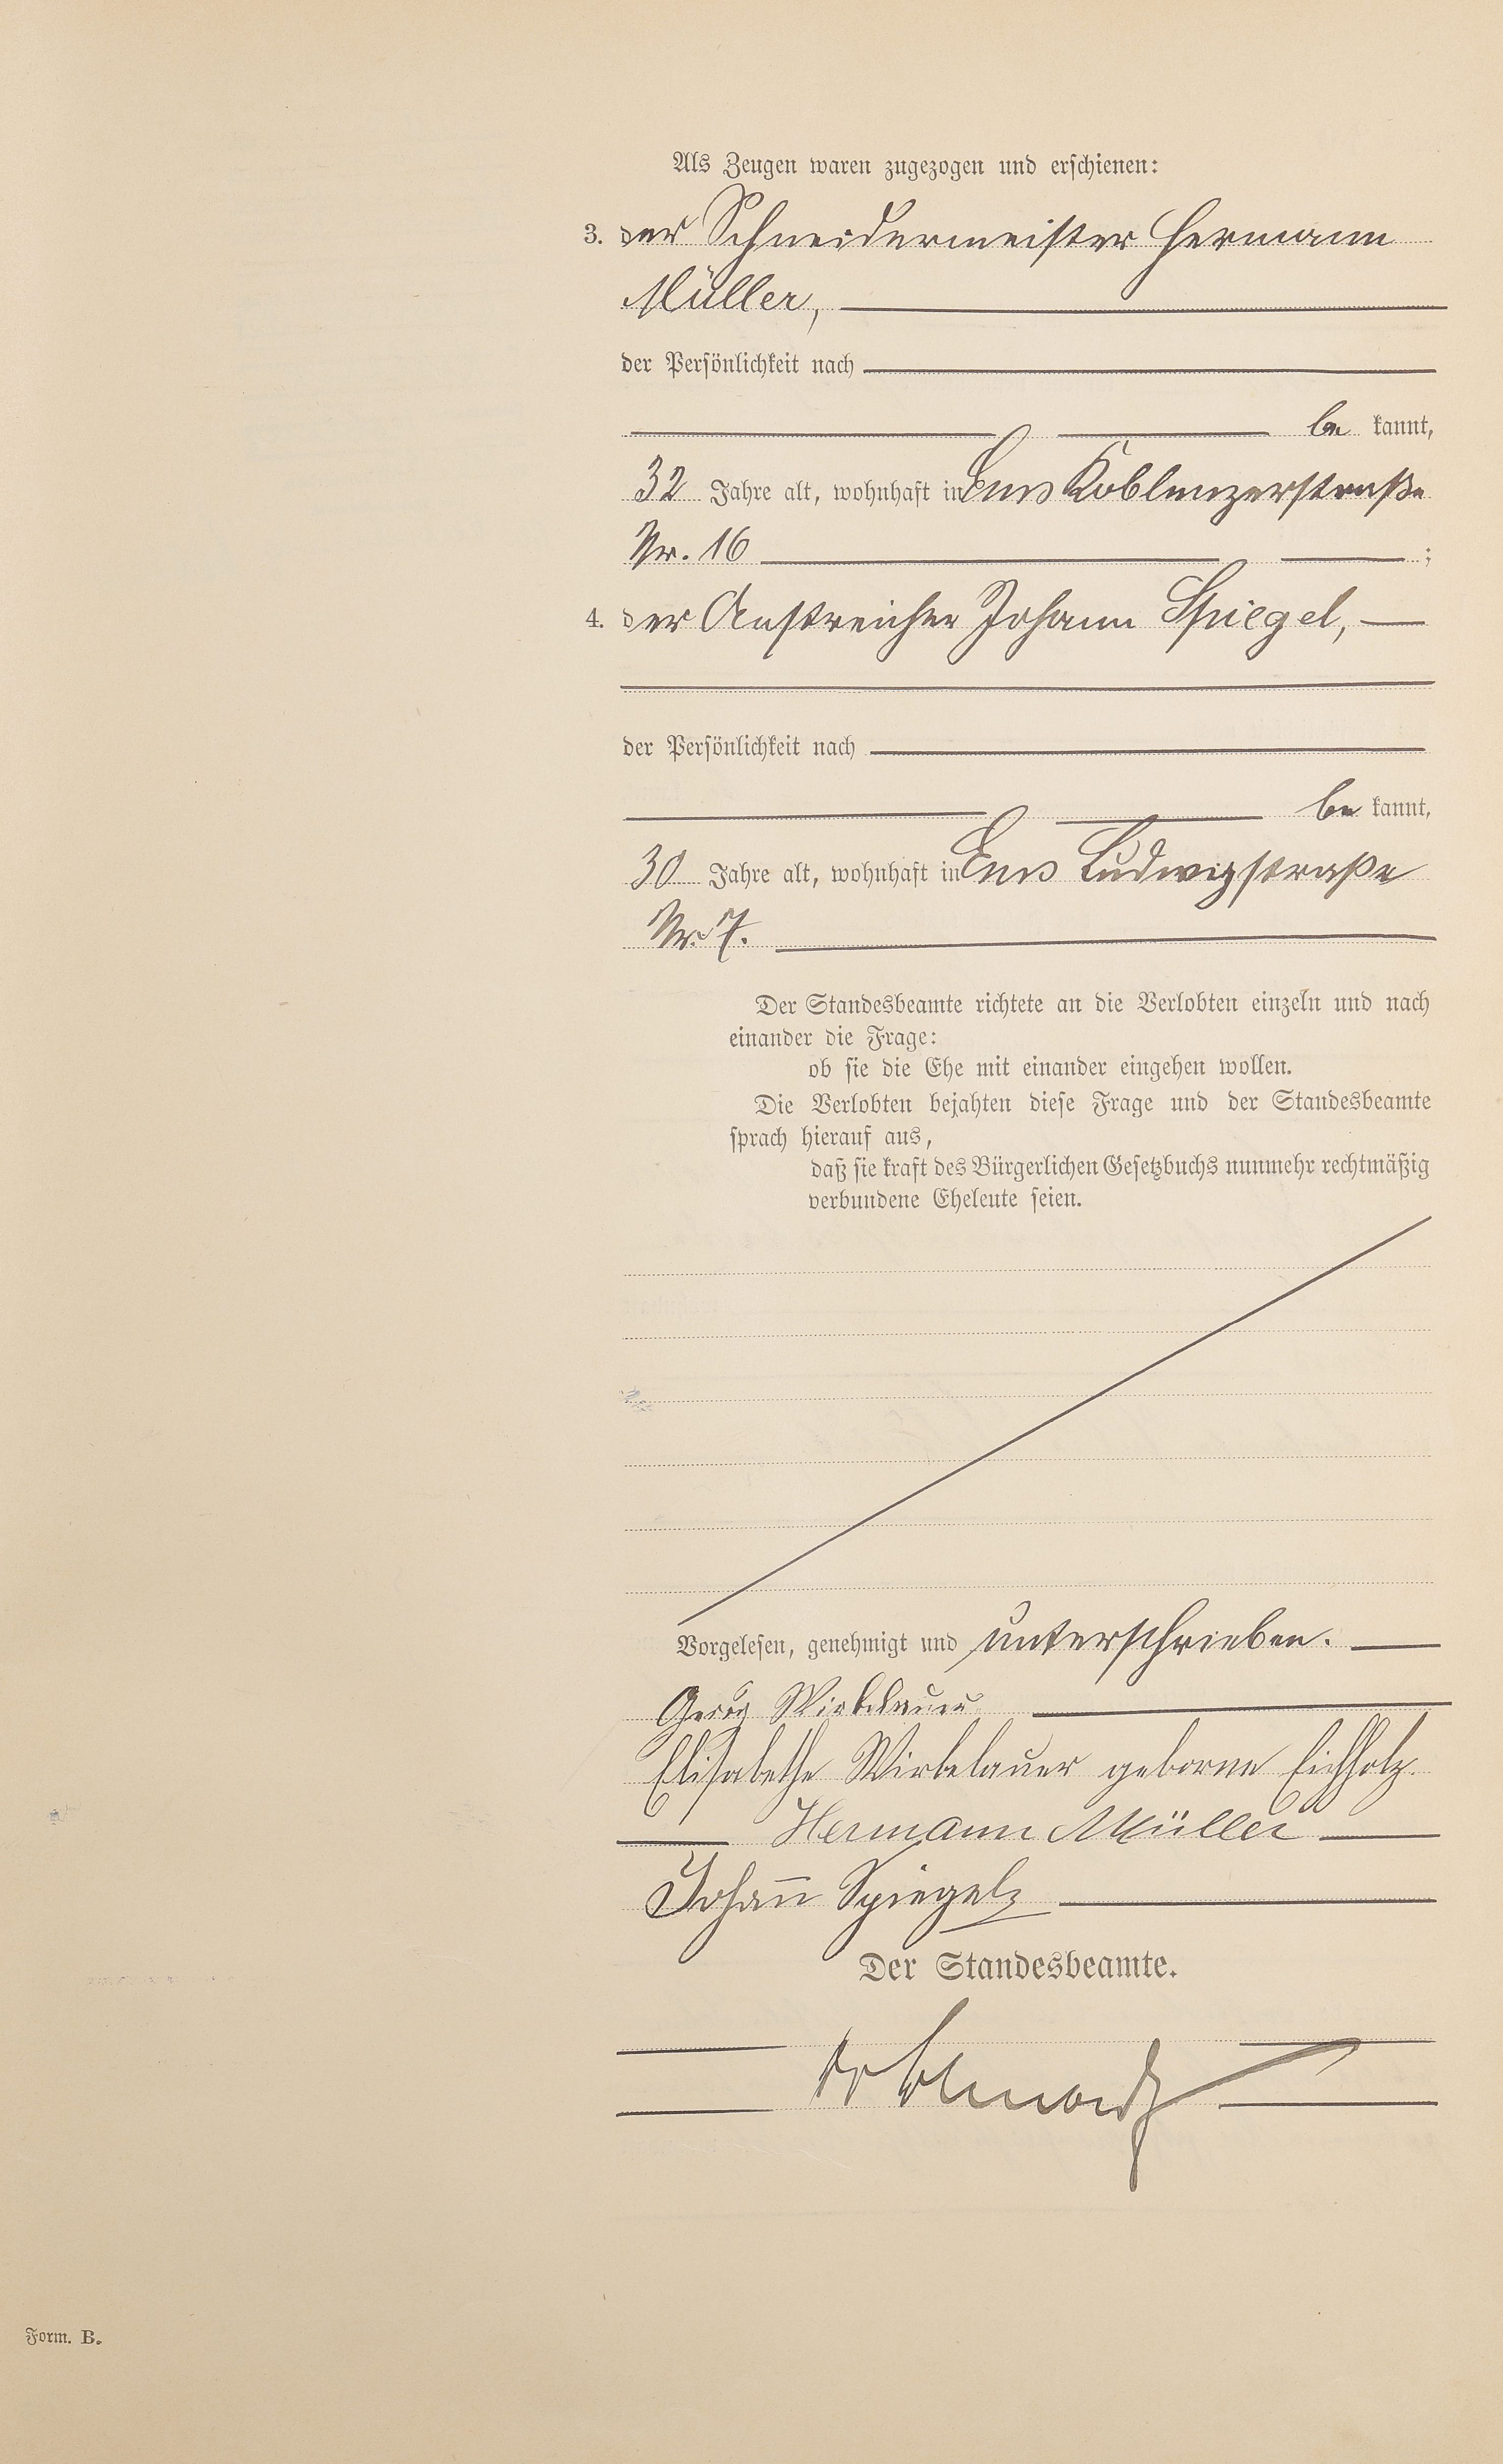 Als Zeugen waren zugezogen und erschienen:
3. der Schneidermeister Hermann
Müller,
der Persönlichkeit nach
be kannt,
32 Jahre alt, wohnhaft in Ems Koblenzerstraße
Nr. 16 ;
4. der Anstreicher Johann Spiegel,
der Persönlichkeit nach
be kannt,
30 Jahre alt, wohnhaft in Ems Ludwigstraße
Nr. 7.
Der Standesbeamte richtete an die Verlobten einzeln und nach
einander die Frage:
ob sie die Ehe mit einander eingehen wollen.
Die Verlobten bejahten diese Frage und der Standesbeamte
sprach hierauf aus,
daß sie kraft des Bürgerlichen Gesetzbuchs nunmehr rechtmäßig
verbundene Eheleute seien.
Vorgelesen, genehmigt und unterschrieben.
Georg Wirbelauer
Elisabethe Wirbelauer geborne Eichholz
Hermann Müller
Johann Spiegel
Der Standesbeamte.
Form. B.